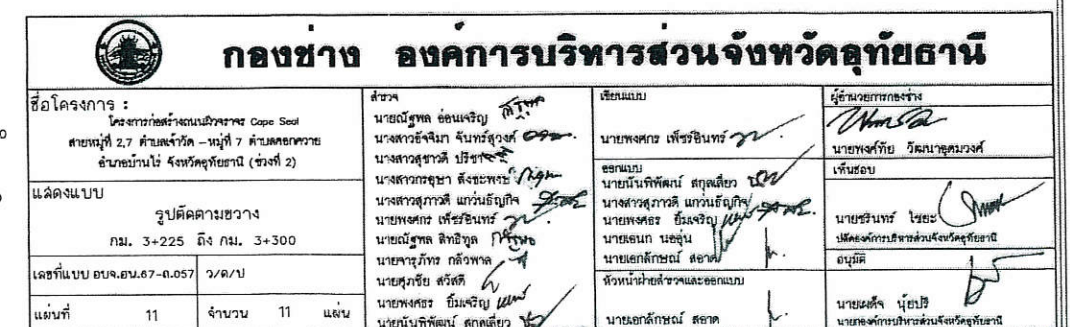 กองช่าง องค์การบริหารส่วนจังหวัดอุทัยธานี
ชื่อโครงการ :
โครงการก่อสร้างถนนผิวจราจร Cape Seal
สายหมู่ที่ 2,7 ตำบลเจ้าวัด -หมู่ที่ 7 ตำบลคอกควาย
อำเภอบ้านไร่ จังหวัดอุทัยธานี (ช่วงที่ 2)
แสดงแบบ
รูปตัดตามขวาง
กม. 3+225 ถึง กม. 3+300
เลขที่แบบ อบจ.อน.67-ถ.057 ว/ด/ป
แผ่นที่ 11 จำนวน 11 แผ่น
สำรวจ
นายณัฐพล อ่อนเจริญ
นางสาวอัจจิมา จันทร์สุวงค์
นางสาวสุชาวดี
นางสาวกฤษา
นางสาวสุภาวดี แกว่นธัญกิจ
นายพงศกร เพ็ชรอินทร์
นายณัฐพล สิทธิทูล
นายจารุภัทร กลัวพาล
นายศุภชัย สวัสดี
นายพงศธร ยิ้มเจริญ
นายนันทิพัฒน์ สกุลเสี่ยว
เขียนแบบ
นายพงศกร เพ็ชรอินทร์
ออกแบบ
นายนันทิพัฒน์ สกุลเสี่ยว
นางสาวสุภาวดี แกว่นธัญกิจ
นายพงศธร ยิ้มเจริญ
นายเอนก
นายเอกลักษณ์ สอาด
หัวหน้าฝ่ายสำรวจและออกแบบ
นายเอกลักษณ์ สอาด
ผู้อำนวยการกองช่าง
นายพงศ์ทัย วัฒนาอุดมวงศ์
เห็นชอบ
นายชรินทร์ ไชยะ
ปลัดองค์การบริหารส่วนจังหวัดอุทัยธานี
อนุมัติ
นายเผด็จ นุ้ยปรี
นายกองค์การบริหารส่วนจังหวัดอุทัยธานี